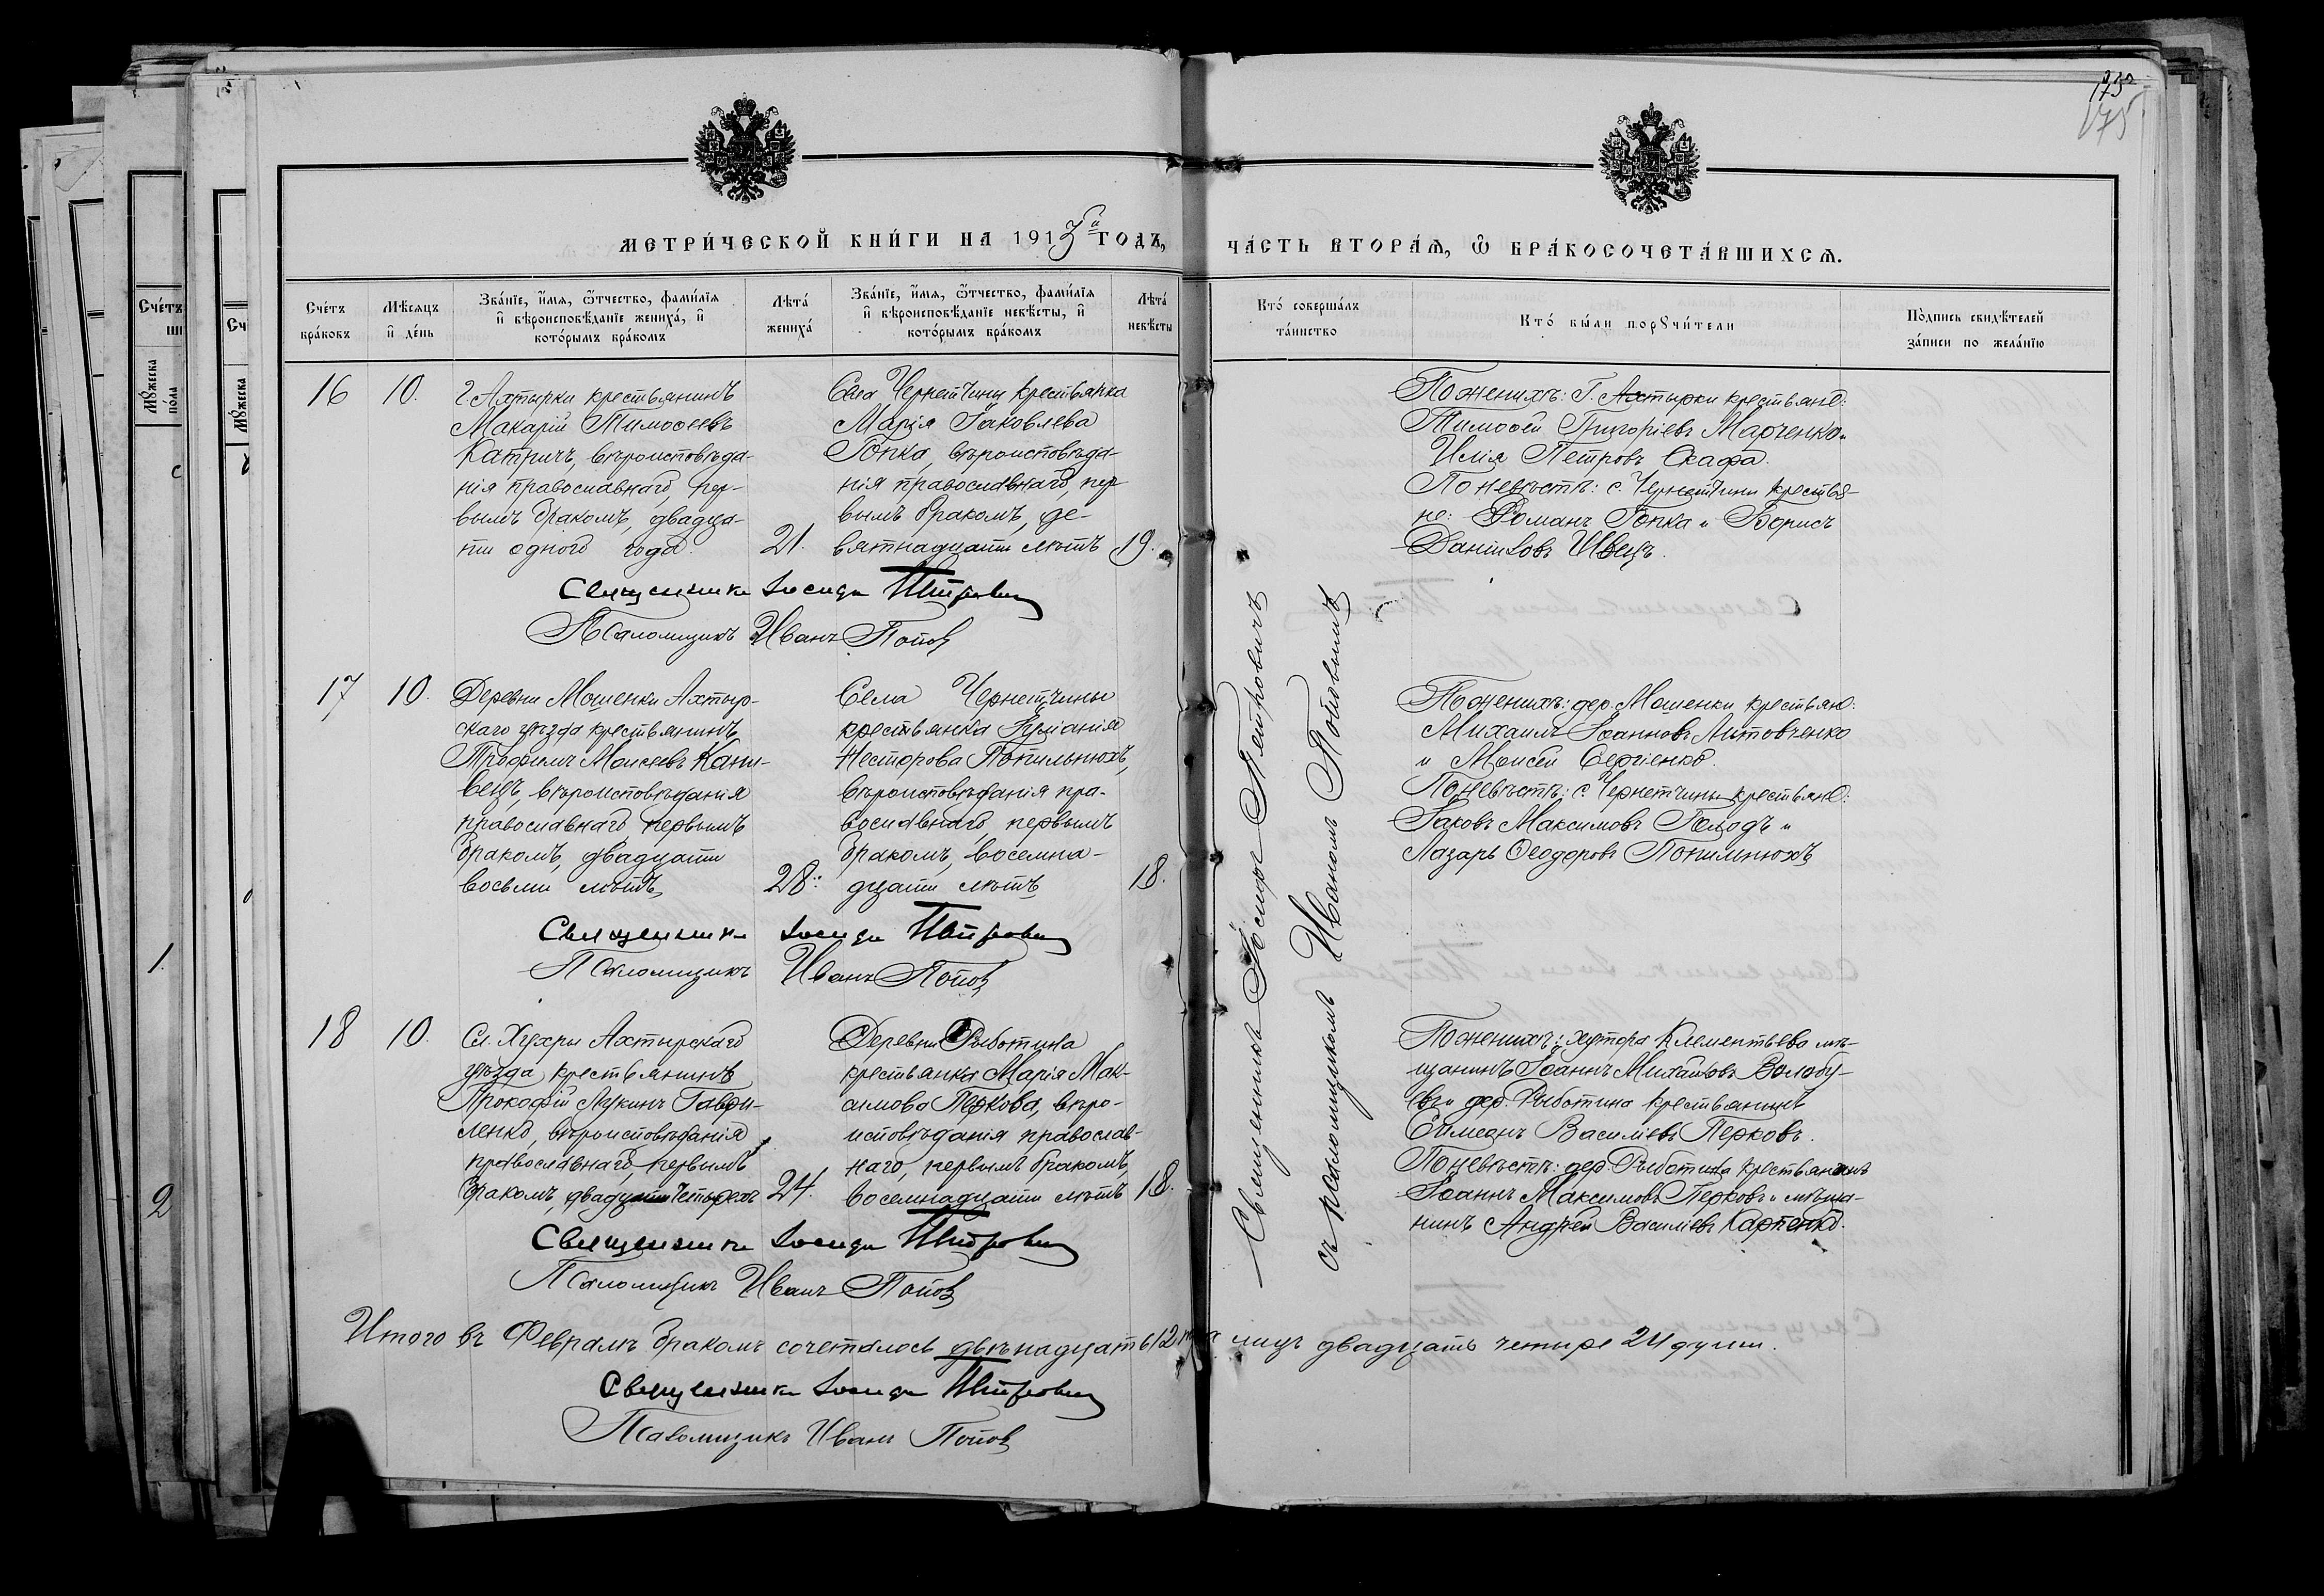 175
175
МЕТРИ́ЧЕСКОЙ КНИ́ГИ НА 1913й ГОДЪ,
ЧА́СТЬ ВТОРА́Ѧ, Ѡ҆ БРА́КОСОЧЕТА́ВШИХСѦ.
Сче́тъ бра́ковъ
Мѣ́сяцъ и҆ де́нь
Зва́нїе, и҆́мѧ, ѻ҆́тчество, фами́лїѧ
и҆ вѣроисповѣ́данїе жениха́, и҆
кото́рымъ бра́комъ
Лѣта́ жениха́
Зва́нїе, и҆́мѧ, ѻ҆́тчество, фами́лїѧ
и҆ вѣроисповѣ́данїе невѣ́сты, и҆
кото́рымъ бра́комъ
Лѣта́ невѣ́сты
Кто́ соверша́лъ
та́инство
Кто́ бы́ли порꙋчи́тели
По́дпись свидѣ́телей
за́писи по жела́нїю
16
10.
г. Ахтырки крестьянинъ
Макарій Тимоѳеевъ
Катричъ, вѣроисповѣда-
нія православнаго, пер-
вымъ бракомъ, двадца-
ти одного года.
21.
Села Чернетчины крестьянка
Марія Іаковлева
Гопка, вѣроисповѣда-
нія православнаго, пер-
вымъ бракомъ, де-
вятнадцати лѣтъ
19.
По женихѣ: Г. Ахтырки крестьяне:
Тимоѳей Григоріевъ Марченко и
Илія Петровъ Скафа.
По невѣстѣ: с. Чернетчины крестья-
не: Романъ Гопка и Борисъ
Даниловъ Швецъ.
Священникъ Іосифъ Петровичъ
Псаломщикъ Иванъ Поповъ
17
10.
Деревни Мошенки Ахтыр-
скаго уѣзда крестьянинъ
Трофимъ Моисеевъ Кани-
вецъ, вѣроисповѣданія
православнаго, первымъ
бракомъ, двадцати
восьми лѣтъ
28.
Села Чернетчины
крестьянка
Несторова Попильнюхъ,
вѣроисповѣданія пра-
вославнаго, первымъ
бракомъ, восемна-
дцати лѣтъ
18.
По женихѣ: дер. Мошенки крестьяне:
Михаилъ Іоанновъ Литовченко
и Моисей Сергіенко.
По невѣстѣ: с. Чернетчины крестьяне:
Іаковъ Максимовъ и
Лазарь Ѳеодоровъ Попильнюхъ
Священникъ Іосифъ Петровичъ
Псаломщикъ Иванъ Поповъ
18
10.
Сл. Хухри Ахтырскаго
уѣзда крестьянинъ
Прокофій Лукинъ Гаври-
ленко, вѣроисповѣданія
православнаго, первымъ
бракомъ, двадцати четырехъ
24.
Деревни Рыботина
крестьянка Марія Мак-
симова Перкова, вѣро-
исповѣданія православ-
наго, первымъ бракомъ,
восемнадцати лѣтъ
18.
По женихѣ: хутора Клементьево мѣ-
щанинъ Іоаннъ Михайловъ Волобу-
евъ и дер. Рыботина крестьянинъ
Симеонъ Василіевъ Перковъ.
По невѣстѣ: дер. Рыботина крестьянинъ
Іоаннъ Максимовъ Перковъ и мѣща-
нинъ Андрей Василіевъ Карпенко.
Священникъ Іосифъ Петровичъ
Псаломщикъ Иванъ Поповъ
Священникъ Іосифъ Петровичъ
съ псаломщикомъ Иваномъ Поповымъ
Итого въ Февралѣ бракомъ сочеталось двѣнадцать 12 лицъ двадцать четыре 24 души.
Священникъ Іосифъ Петровичъ
Псаломщикъ Иванъ Поповъ
Сче́тъ
Мꙋ́жеска
по́ла
Мꙋ́жеска
1.
2